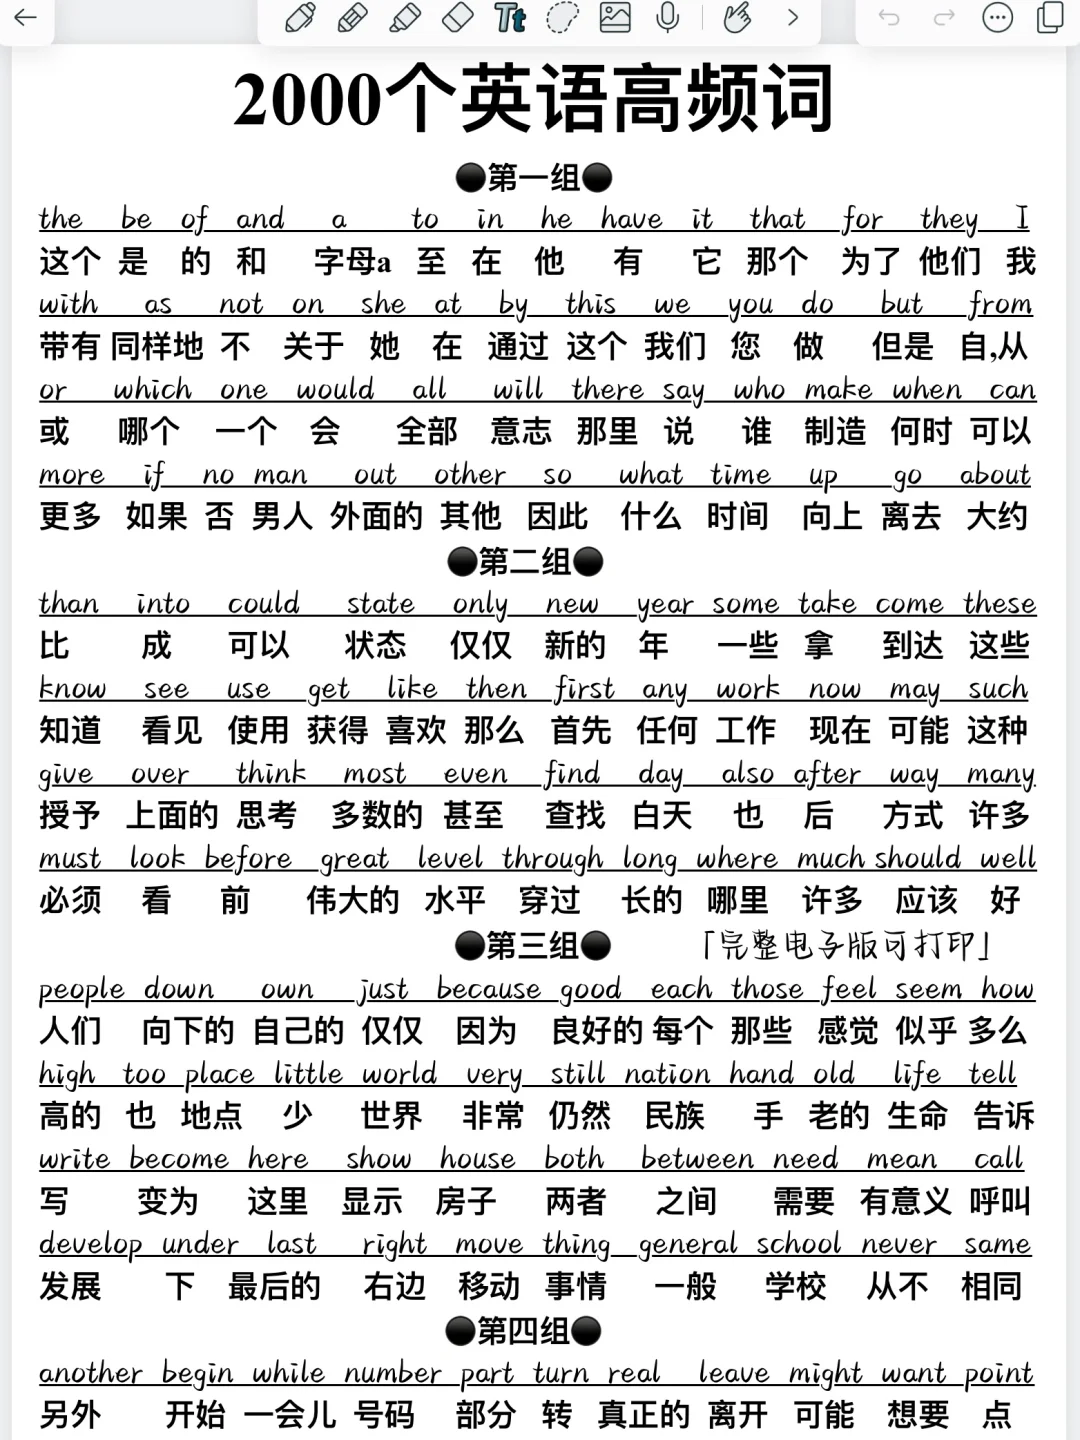 Tt
2000个英语高频词
●第一组●
the be of and a to in he have it that for they I
这个 是 的 和 字母a 至 在 他 有 它 那个 为了 他们 我
with as not on she at by this we you do but from
带有 同样地 不 关于 她 在 通过 这个 我们 您 做 但是 自,从
or which one would all will there say who make when can
或 哪个 一个 会 全部 意志 那里 说 谁 制造 何时 可以
more if no man out other so what time up go about
更多 如果 否 男人 外面的 其他 因此 什么 时间 向上 离去 大约
●第二组●
than into could state only new year some take come these
比 成 可以 状态 仅仅 新的 年 一些 拿 到达 这些
know see use get like then first any work now may such
知道 看见 使用 获得 喜欢 那么 首先 任何 工作 现在 可能 这种
give over think most even find day also after way many
授予 上面的 思考 多数的 甚至 查找 白天 也 后 方式 许多
must look before great level through long where much should well
必须 看 前 伟大的 水平 穿过 长的 哪里 许多 应该 好
●第三组● 「完整电子版可打印」
people down own just because good each those feel seem how
人们 向下的 自己的 仅仅 因为 良好的 每个 那些 感觉 似乎 多么
high too place little world very still nation hand old life tell
高的 也 地点 少 世界 非常 仍然 民族 手 老的 生命 告诉
write become here show house both between need mean call
写 变为 这里 显示 房子 两者 之间 需要 有意义 呼叫
develop under last right move thing general school never same
发展 下 最后的 右边 移动 事情 一般 学校 从不 相同
●第四组●
another begin while number part turn real leave might want point
另外 开始 一会儿 号码 部分 转 真正的 离开 可能 想要 点